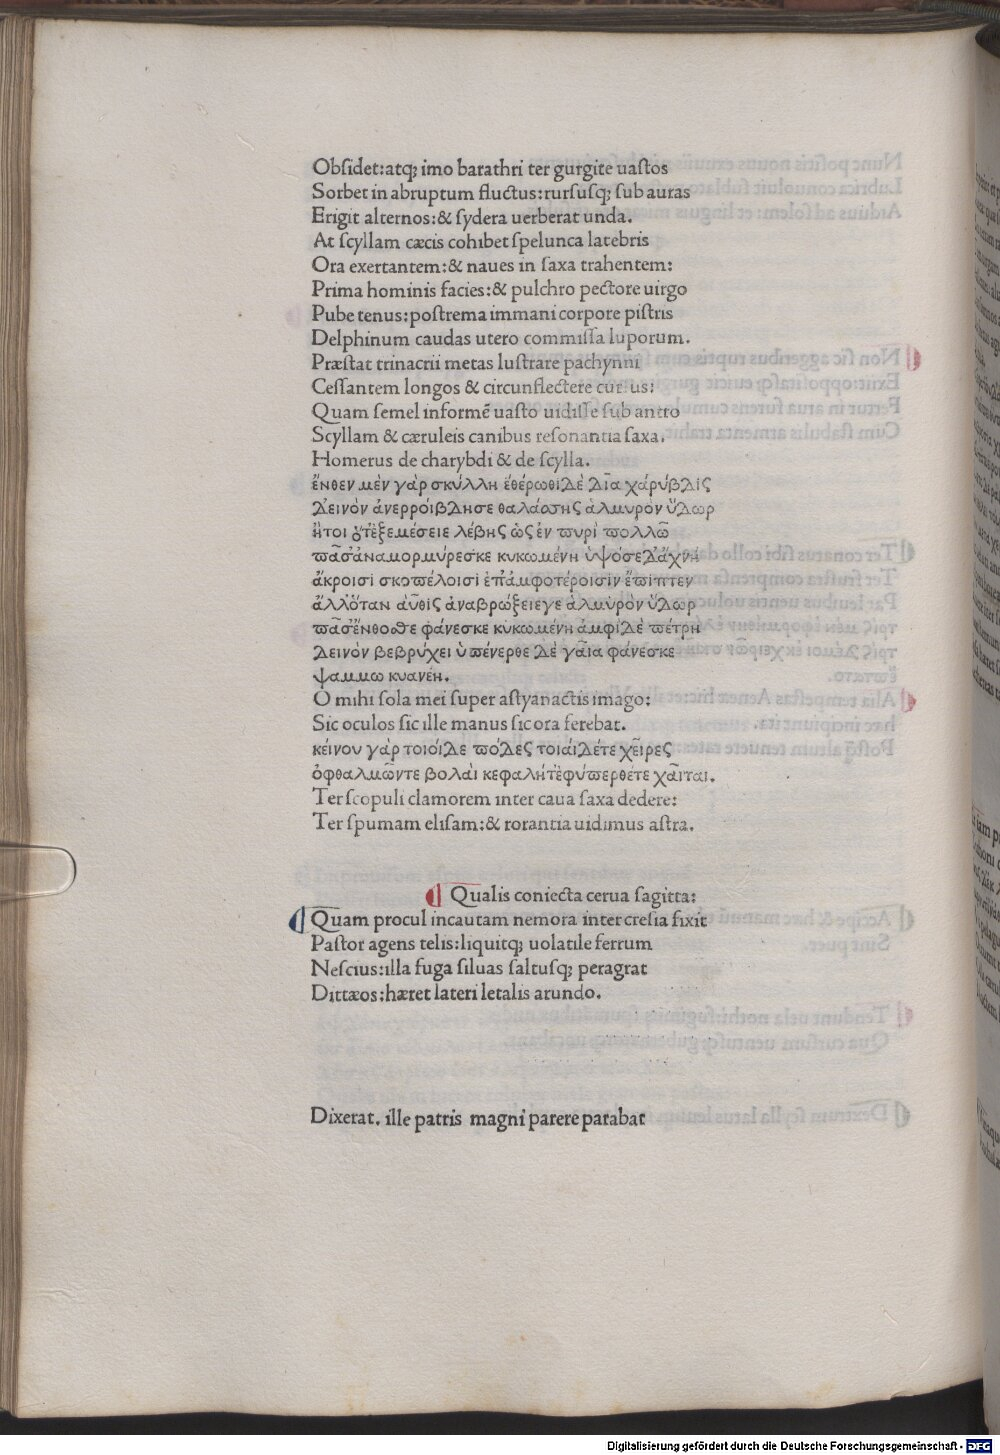 Obſidet:atqꝫ imo barathri ter gurgite uaſtos
Sorbet in abruptum fluctus:rurſusqꝫ ſub auras
Erigit alternos:& ſydera uerberat unda.
At ſcyllam cæcis cohibet ſpelunca latebris
Ora exertantem:& naues in ſaxa trahentem:
Prima hominis facies:& pulchro pectore uirgo
Pube tenus:poſtrema immani corpore piſtris
Delphinum caudas utero commiſſa luporum.
Præſtat trinacrii metas luſtrare pachynni
Ceſſantem longos & circunflectere curſus:
Quam ſemel informē uaſto uidiſſe ſub antro
Scyllam & cæruleis canibus reſonantia ſaxa.
Homerus de charybdi & de ſcylla.
ἔνθεν μὲν γὰρ σκύλλη ἑθέρωθι δὲ δῖα χάρύβδις
δεινὸν ἀνερροίβδησε θαλάσσης ἁλμυρὸν ὕδωρ
ἤτοι ὅτ̓ἐξεμέσειε λέβης ὡς ἐν πυρὶ πολλῶ
πᾶσ̓ἀναμορμύρεσκε κυκωμένη ὑψόσε δ̓ἄχνὴ
ἄκροισι σκοπέλοισι ἐπ̓ἀμφοτέροισιν ἔπιπτεν
ἄλλ̓ὅταν αὖθις ἀναβρώξειεγε ἁλμυρὸν ὕδωρ
πᾶσ̓ἔνθοσθε φάνεσκε κυκωμένη ἀμφὶ δὲ πέτρη
δεινὸν βεβρύχει ὑπένερθε δὲ γαῖα φάνεσκε
ψαμμω κυανέη.
O mihi ſola mei ſuper aſtyanactis imago:
Sic oculos ſic ille manus ſic ora ferebat.
κείνου γὰρ τοιοίδε πόδες τοιαίδέτε χεῖρες
ὀφθαλμῶντε βολαὶ κεφαλήτ̓ἐφύπερθέτε χαῖται.
Ter ſcopuli clamorem inter caua ſaxa dedere:
Ter ſpumam eliſam:& rorantia uidimus aſtra.
Qualis coniecta cerua ſagitta:
Quam procul incautam nemora inter creſia fixit
Paſtor agens telis:liquitqꝫ uolatile ferrum
Neſcius:illa fuga ſiluas ſaltuſqꝫ peragrat
Dittæos:hæret lateri letalis arundo.
Dixerat. ille patris magni parere parabat
Digitalisierung gefördert durch die Deutsche Forschungsgemeinschaft - DFG